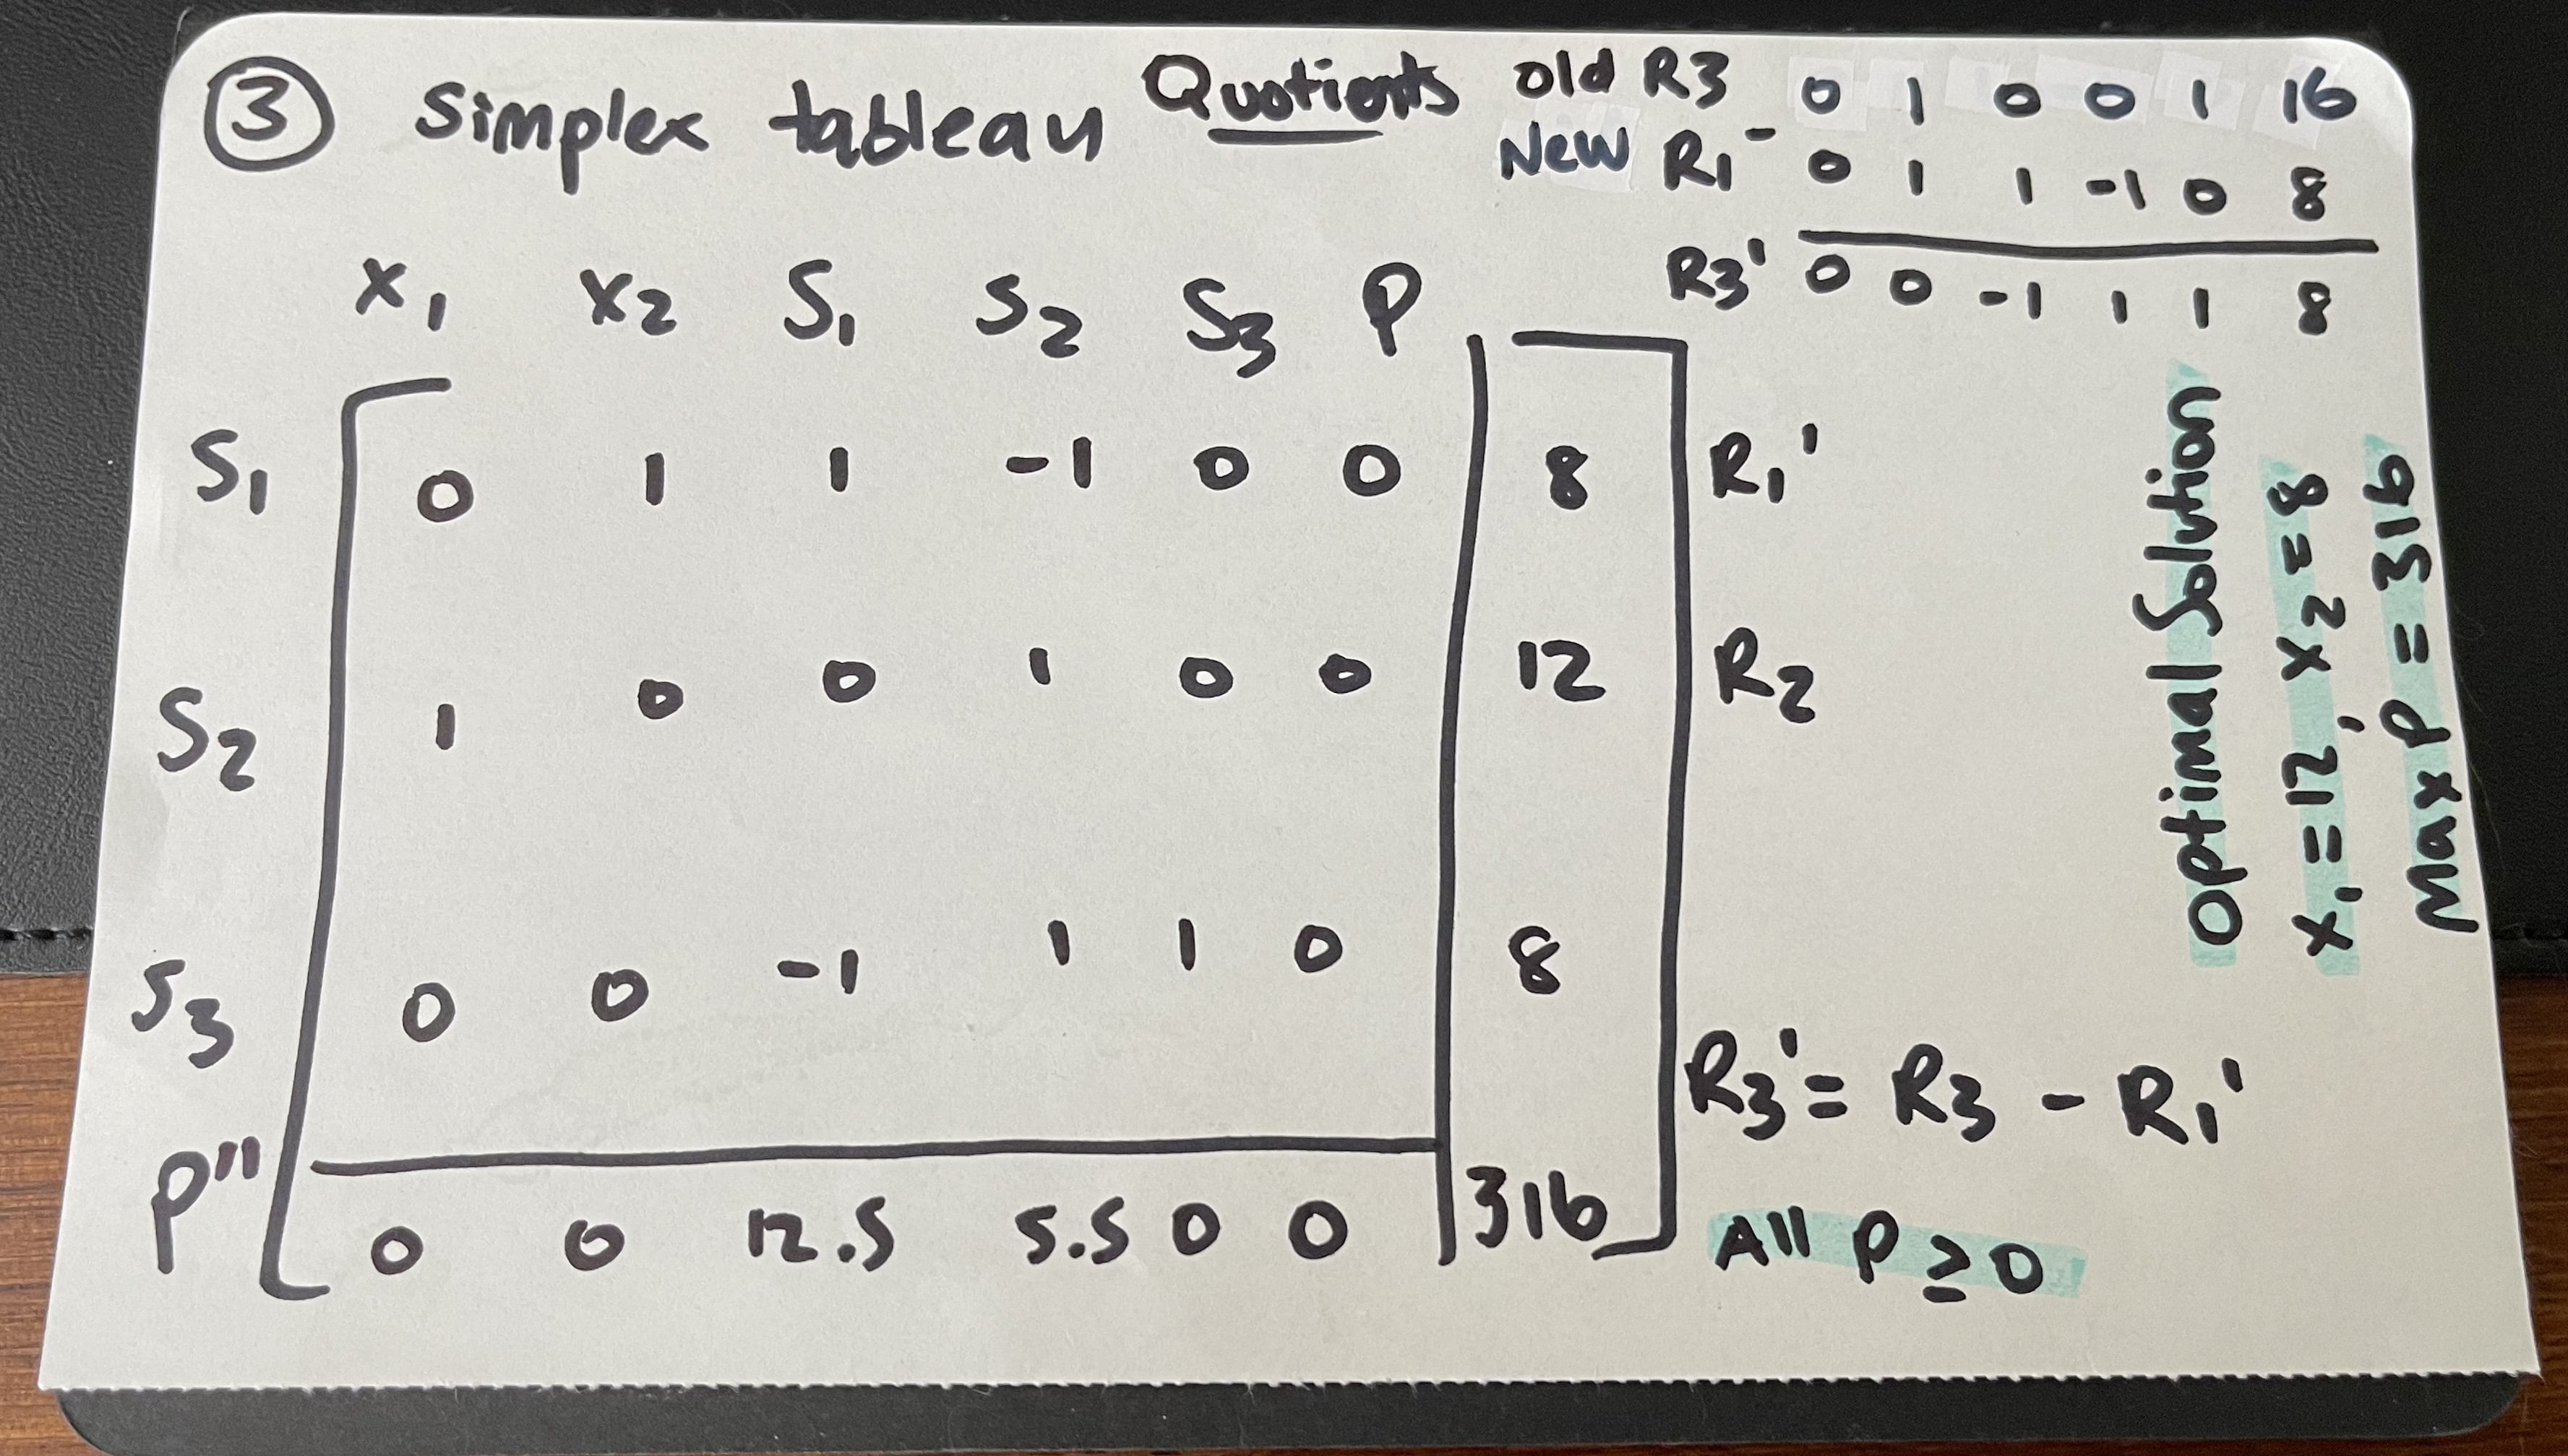 ③ Simplex tableau Quotients
Old R3 0 1 0 0 1 16
New R1 - 0 1 1 -1 0 8
R3' 0 0 -1 1 1 8
x1 x2 S1 S2 S3 P
S1 0 1 1 -1 0 0 8 R1'
S2 1 0 0 1 0 0 12 R2
S3 0 0 -1 1 1 0 8
R3' = R3 - R1'
P" 0 0 12.5 5.5 0 0 316
All P ≥ 0
Optimal Solution
x1 = 12, x2 = 8
Max P = 316